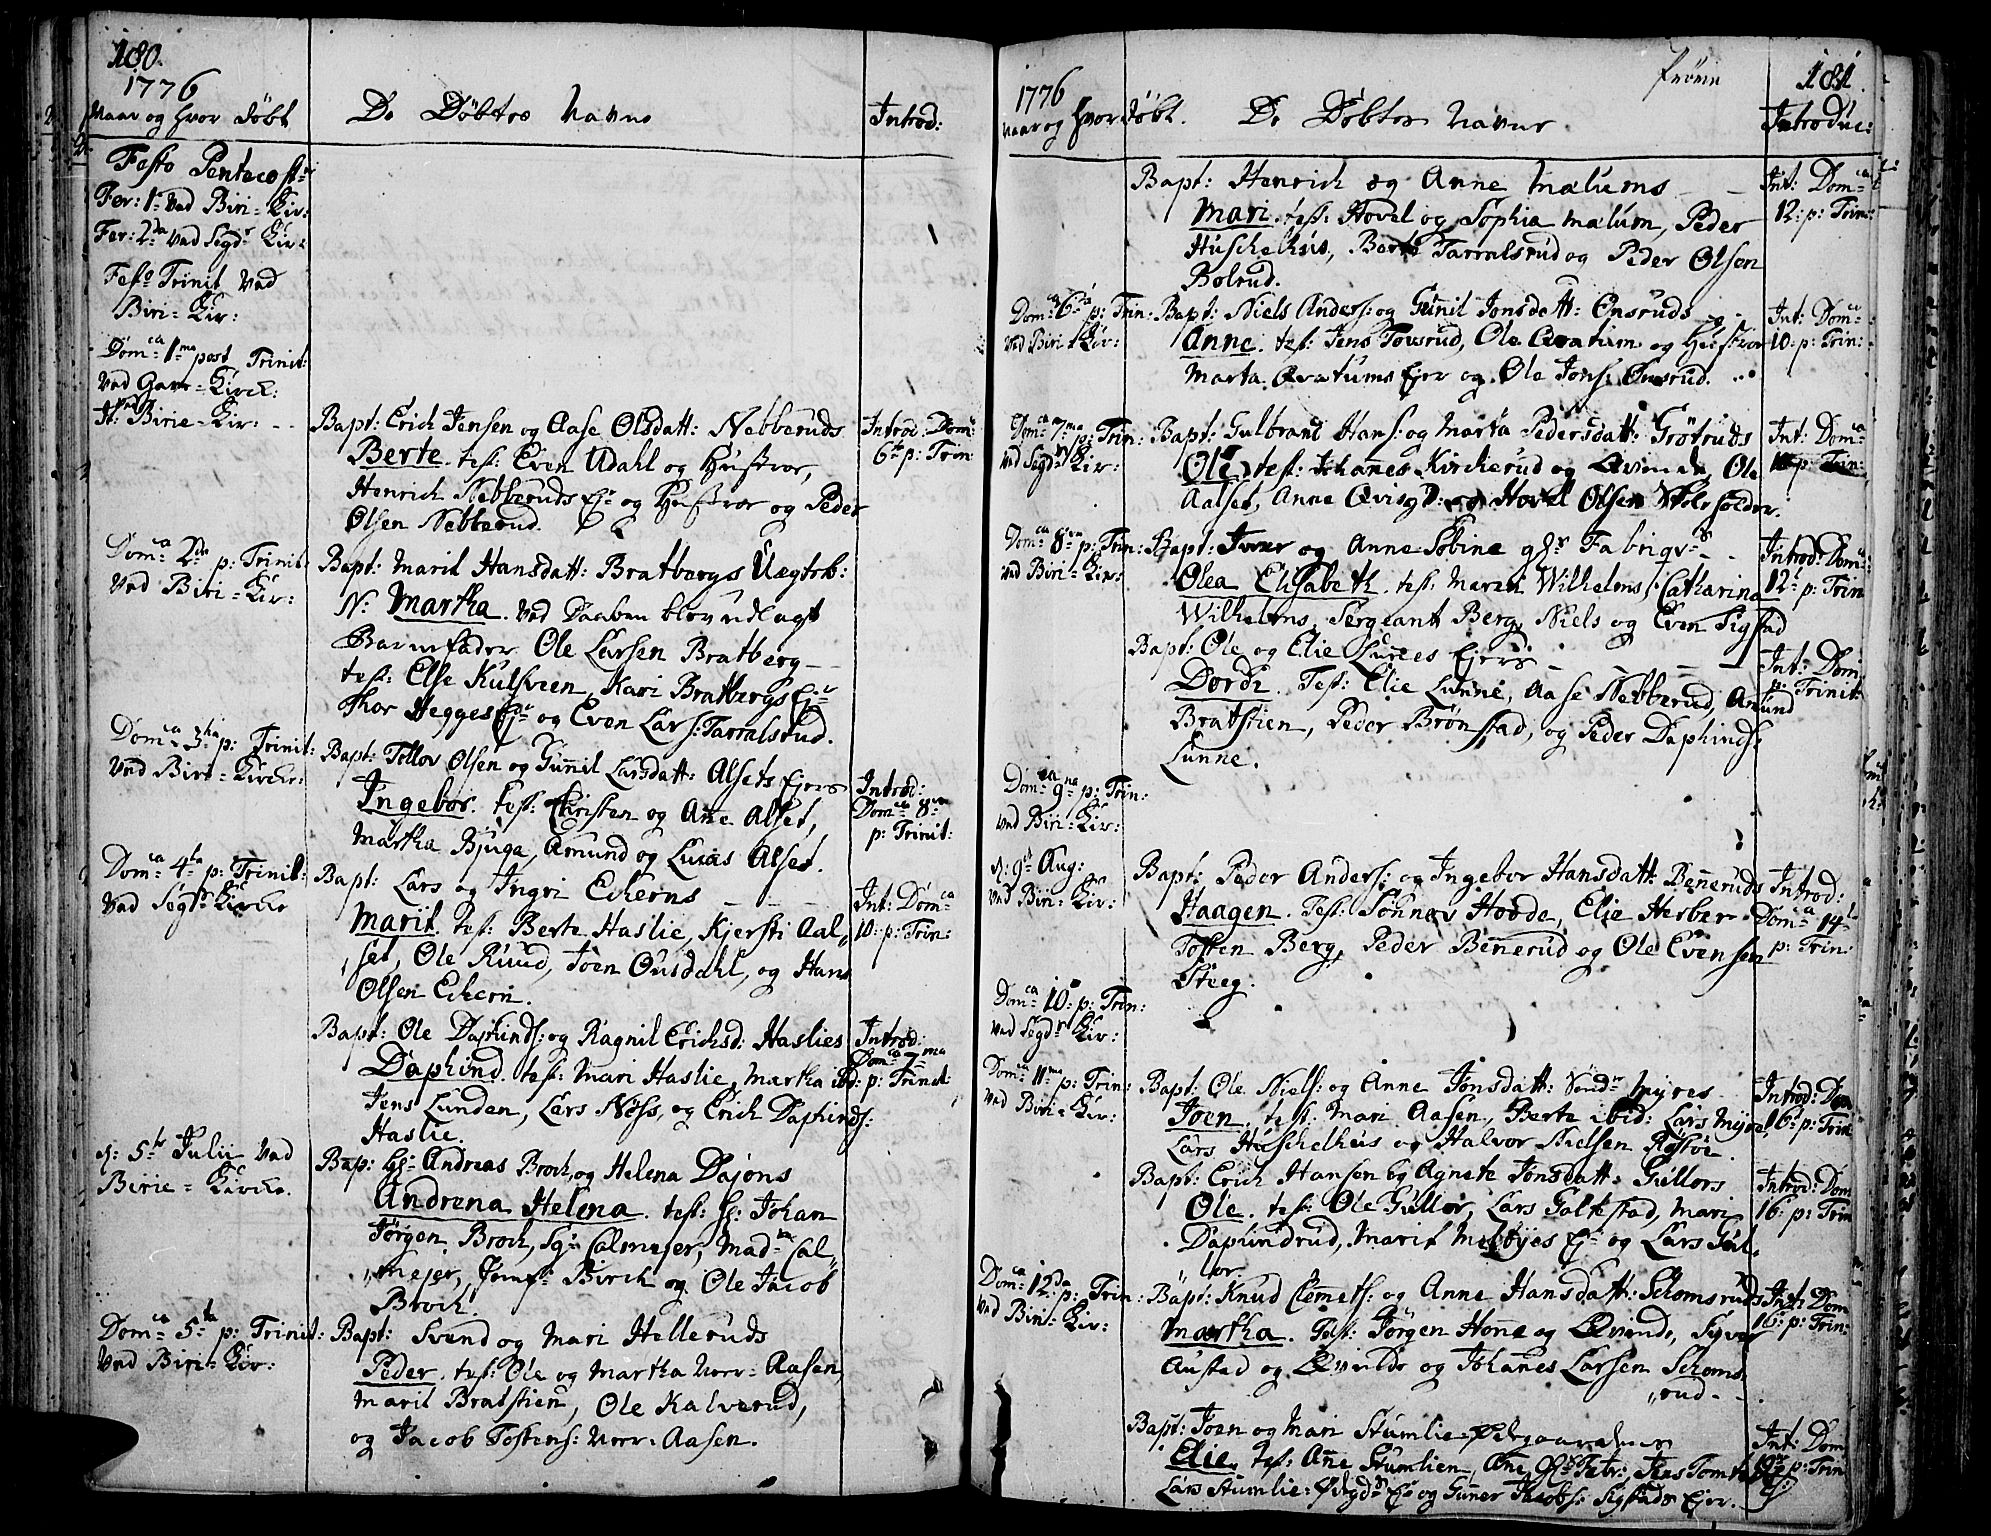 180.
1776
Naar og hvor Døbt
De Døbtes Navne
Introd:
Festo Pentecost:
Fer: 1 ved Biri-Kir:
Fer: 2da ved Segd: Kir:
Festo Trinit ved
Biri-Kir:
Dom:ca 1ma post Trinit:
ved Gave-Kirck:
It: Birie-Kir:
Bapt: Erich Jensen og Aase Olsdatt: Nebberuds
Berte. test: Even Udahl og Hustroe,
Henrich Nebberuds Ejr og Hustroe og Peder
Olsen Nebberud.
Introd: Dom:
6te p: Trin:
Dom:ca 2da p: Trinit
ved Biri-Kir:
Bapt: Marit Hansdatt: Bratbergs Uægteb:
N: Martha. ved Daaben blev udlagt
Barnefader Ole Larsen Bratberg
test: Else Kulsveen, Kari Bratbergs Ejr
Thor Hegges Ejr og Even Lars: Tarralsrud.
Dom:ca 3tia p: Trinit:
ved Biri-Kircke:
Bapt: Tollov Olsen og Gunnil Larsdatt: Alsets Ejers
Ingebor. test: Christen og Anne Alset,
Martha Bjuge, Amund og Lucas Alset.
Introd:
Dom:ca 8va
p: Trinit:
Dom:ca 4ta p: Trinit:
ved Segd: Kircke
Bapt: Lars og Ingri Eckerns
Marit. test: Berte Haslie, Kjersti Aal-
set, Ole Ruud, Joen Ousdahl, og Hans
Olsen Eckern.
Int: Dom:ca
10: p: Trin:
Bapt: Ole Daphinds: og Ragnil Erichsd: Haslies
Daphind. test: Mari Haslie, Martha ibd:
Jens Lunden, Lars Næss, og Erich Daphinds:
Haslie.
Introd:
Dom:ca 7ma
p: Trinit:
d: 5te Julii ved
Birie-Kircke.
Bap: Hr Andreas Broch, og Helena Dajons
Andrena Helena. test: Hr: Johan
Jørgen Broch, Sgr Calmejer, Mad:me Cal-
mejer, Jomfr Birch og Ole Jacob
Broch.
Dom:ca 5ta p: Trinit:
ved Biri-Kir:
Bapt: Svend og Mari Helleruds
Peder. test: Ole og Martha Norr-Aasen,
Marit Bratstien, Ole Kalverud,
og Jacob Tostens: Norr-Aasen.
181.
1776
Naar og hvor Døbt.
De Døbtes Navne.
Introduc:
Bapt: Henrich og Anne Mælums
Mari. test: Hovel og Sophia Mælum, Peder
Huschelhus, Berte Tarralsrud og Peder Olsen
Bolrud.
Int: Dom:ca
12: p: Trin:
Dom:ca 6ta p: Trin:
ved Biri-Kir:
Bapt: Niels Anders: og Gunnil Jonsdatt: Onsruds
Anne. test: Jens Tousrud, Ole Qvatum og Hustroe
Marta Qvatums Ejer og Ole Jons: Onsrud.
Int: Dom:ca
10: p: Trin:
Dom:ca 7ma p: Trin:
ved Segd: Kir:
Bapt: Gulbrant Hans: og Marta Pedersdatt: Grøtruds
Ole. test: Johannes Kirckerud og Qvinde, Ole
Aalset, Anne Qvisgd: og Hovel Olsen
Int: Dom:ca
p: Trin:
Dom:ca 8va p: Trin:
ved Biri-Kir:
Bapt: Iver og Anne Sobine Fabriqv:
Olea Elisabeth. test: Maren Wilhelms, Catharina
Wilhelms, Sergeant Berg, Niels og Even Sigstad
Introd: Dom:
12: p: Trin
Bapt: Ole og Elie Lunnes Ejers
Dordi. Test: Elie Lunne, Aase Nebberud, Amund
Bratstien, Peder Brønstad, og Peder Daphinds:
Lunne.
Int: Dom
p: Trinit:
Dom:ca 9na p: Trin:
ved Biri-Kir:
d: 9de Aug:
ved Biri-Kir:
Bapt: Peder Anders: og Ingebor Hansdatt: Benneruds
Haagen. Test: Hovde, Elie Herber
Tosten Berg, Peder Bennerud og Ole Evensen
Steeg.
Introd:
Dom:ca 14
p: Trin:
Dom:ca 10: p: Trin:
ved Segd: Kir:
Dom:ca 11ma p: Trin:
ved Biri-Kir:
Bapt: Ole Niels: og Anne Jonsdatt: Sønd: Myres
Joen. test: Mari Aasen, Berte ibid: Lars Myre,
Lars Huschelhus og Halvor Nielsen
Introd: Dom
16: p: Trin
Bapt: Erich Hansen og Agnete Jonsdatt: Gullors
Ole. test: Ole Gullor, Lars Galtestad, Mari
Daphindrud, Marit Ejr og Lars Gul-
lor.
Introd: Dom
16: p: Trin
Dom:ca 12da p: Trin:
ved Biri-Kir:
Bapt: Knud Clemets: og Anne Hansdatt: Schomsruds
Martha. Test: Jørgen Honne og Qvinde, Syver
Austad og Qvinde og Johannes Larsen Schoms-
rud-
Int: Dom
16: p: Trin:
Bapt: Joen og Mari Stumlie-Ødegaardens
Elie. test: Anne Stumlien, Anne Jens
Lars Stumlie: Ødegd:s Ejr og Gunner Jacobs: Sigstads Ejer.
Int: Dom
p: Trin